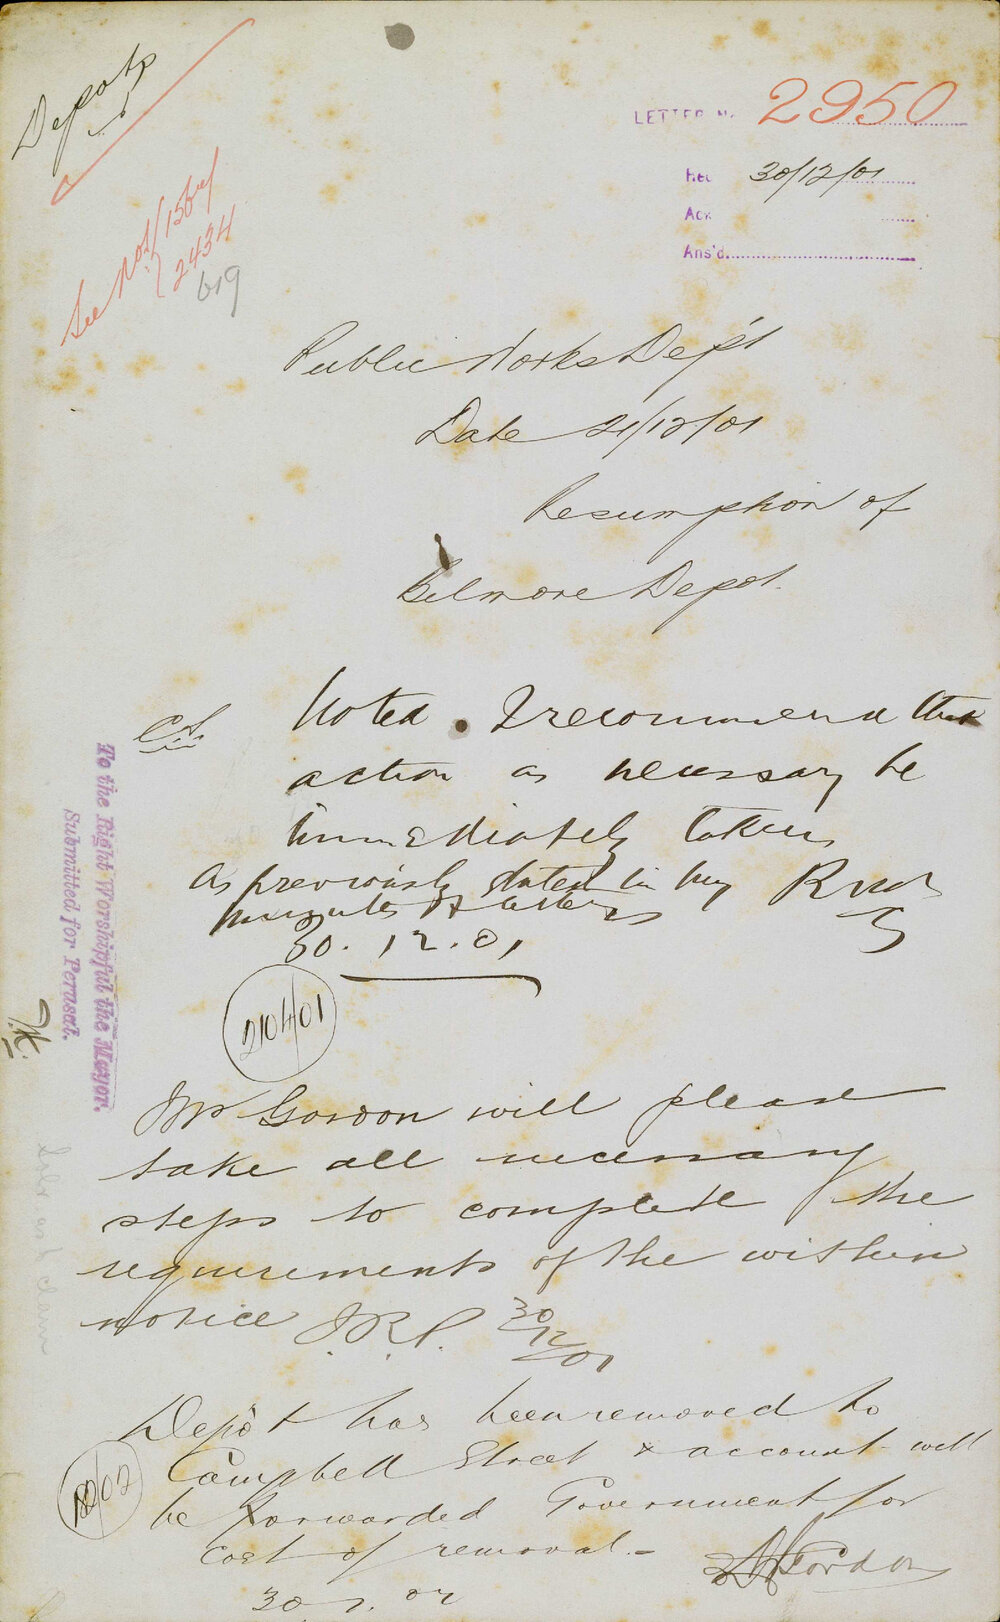 Depots
LETTER No 2950
Rec 30/12/01
Ack
Ans'd
See Nos 156
2434
619
Public Works Dep't
Date 21/12/01
Resumption of
Belmore Depot.
Noted. I recommend that
action as necessary be
immediately taken
As previously stated in my
minutes & letters
30.12.01
To the Right Worshipful the Mayor.
Submitted for Perusal.
2104/01
Mr Gordon will please
take all necessary
steps to complete the
requirements of the within
notice J.R.P. 30/12/01
Depôt has been removed to
Campbell Street & account will
be forwarded Government for
cost of removal.-
Gordon
30